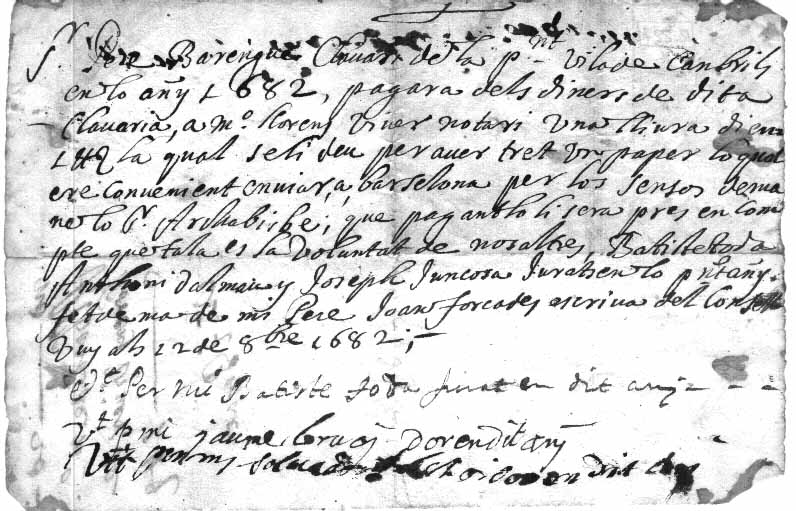 Sr. Pere Barengue Clavari de la pnt vila de Canbrils
en lo añy 1682, pagara dels diners de dita
Clavaria, a mo. llorens viver notari una lliura dic un
1 ll la qual se li deu per aver tret un paper lo qual
ere convenient enviar, a barselona per los sensos dema
ne lo Sr. Archabisbe, que pagantlo li sera pres en Com
pte que tal es la voluntat de nosaltres, Batiste Toda
Anthoni dalmau y Joseph Juncosa Jurats en lo pnt añy.
fet de ma de mi Pere Joan forcades escriva del Consell
Vuy als 12 de 8bre 1682;
Vt. Per mi Batiste Toda Jurat en dit any
Vt. p mi jaume en dit añy
Vtt per mi en dit any